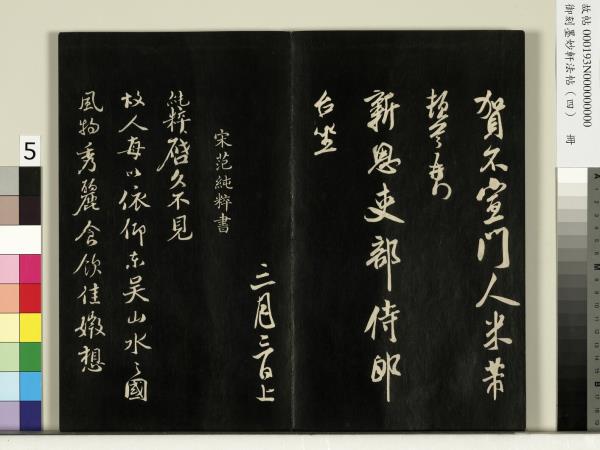 故帖 000193N000000000
御刻墨妙軒法帖(四) 冊
賀不宣門人米芾
頓首
新恩吏部侍郎
台坐
三月二日上
宋范純粹書
純粹啓久不見
故人每以依仰東吳山水之國
風物秀麗含飲佳
想
5